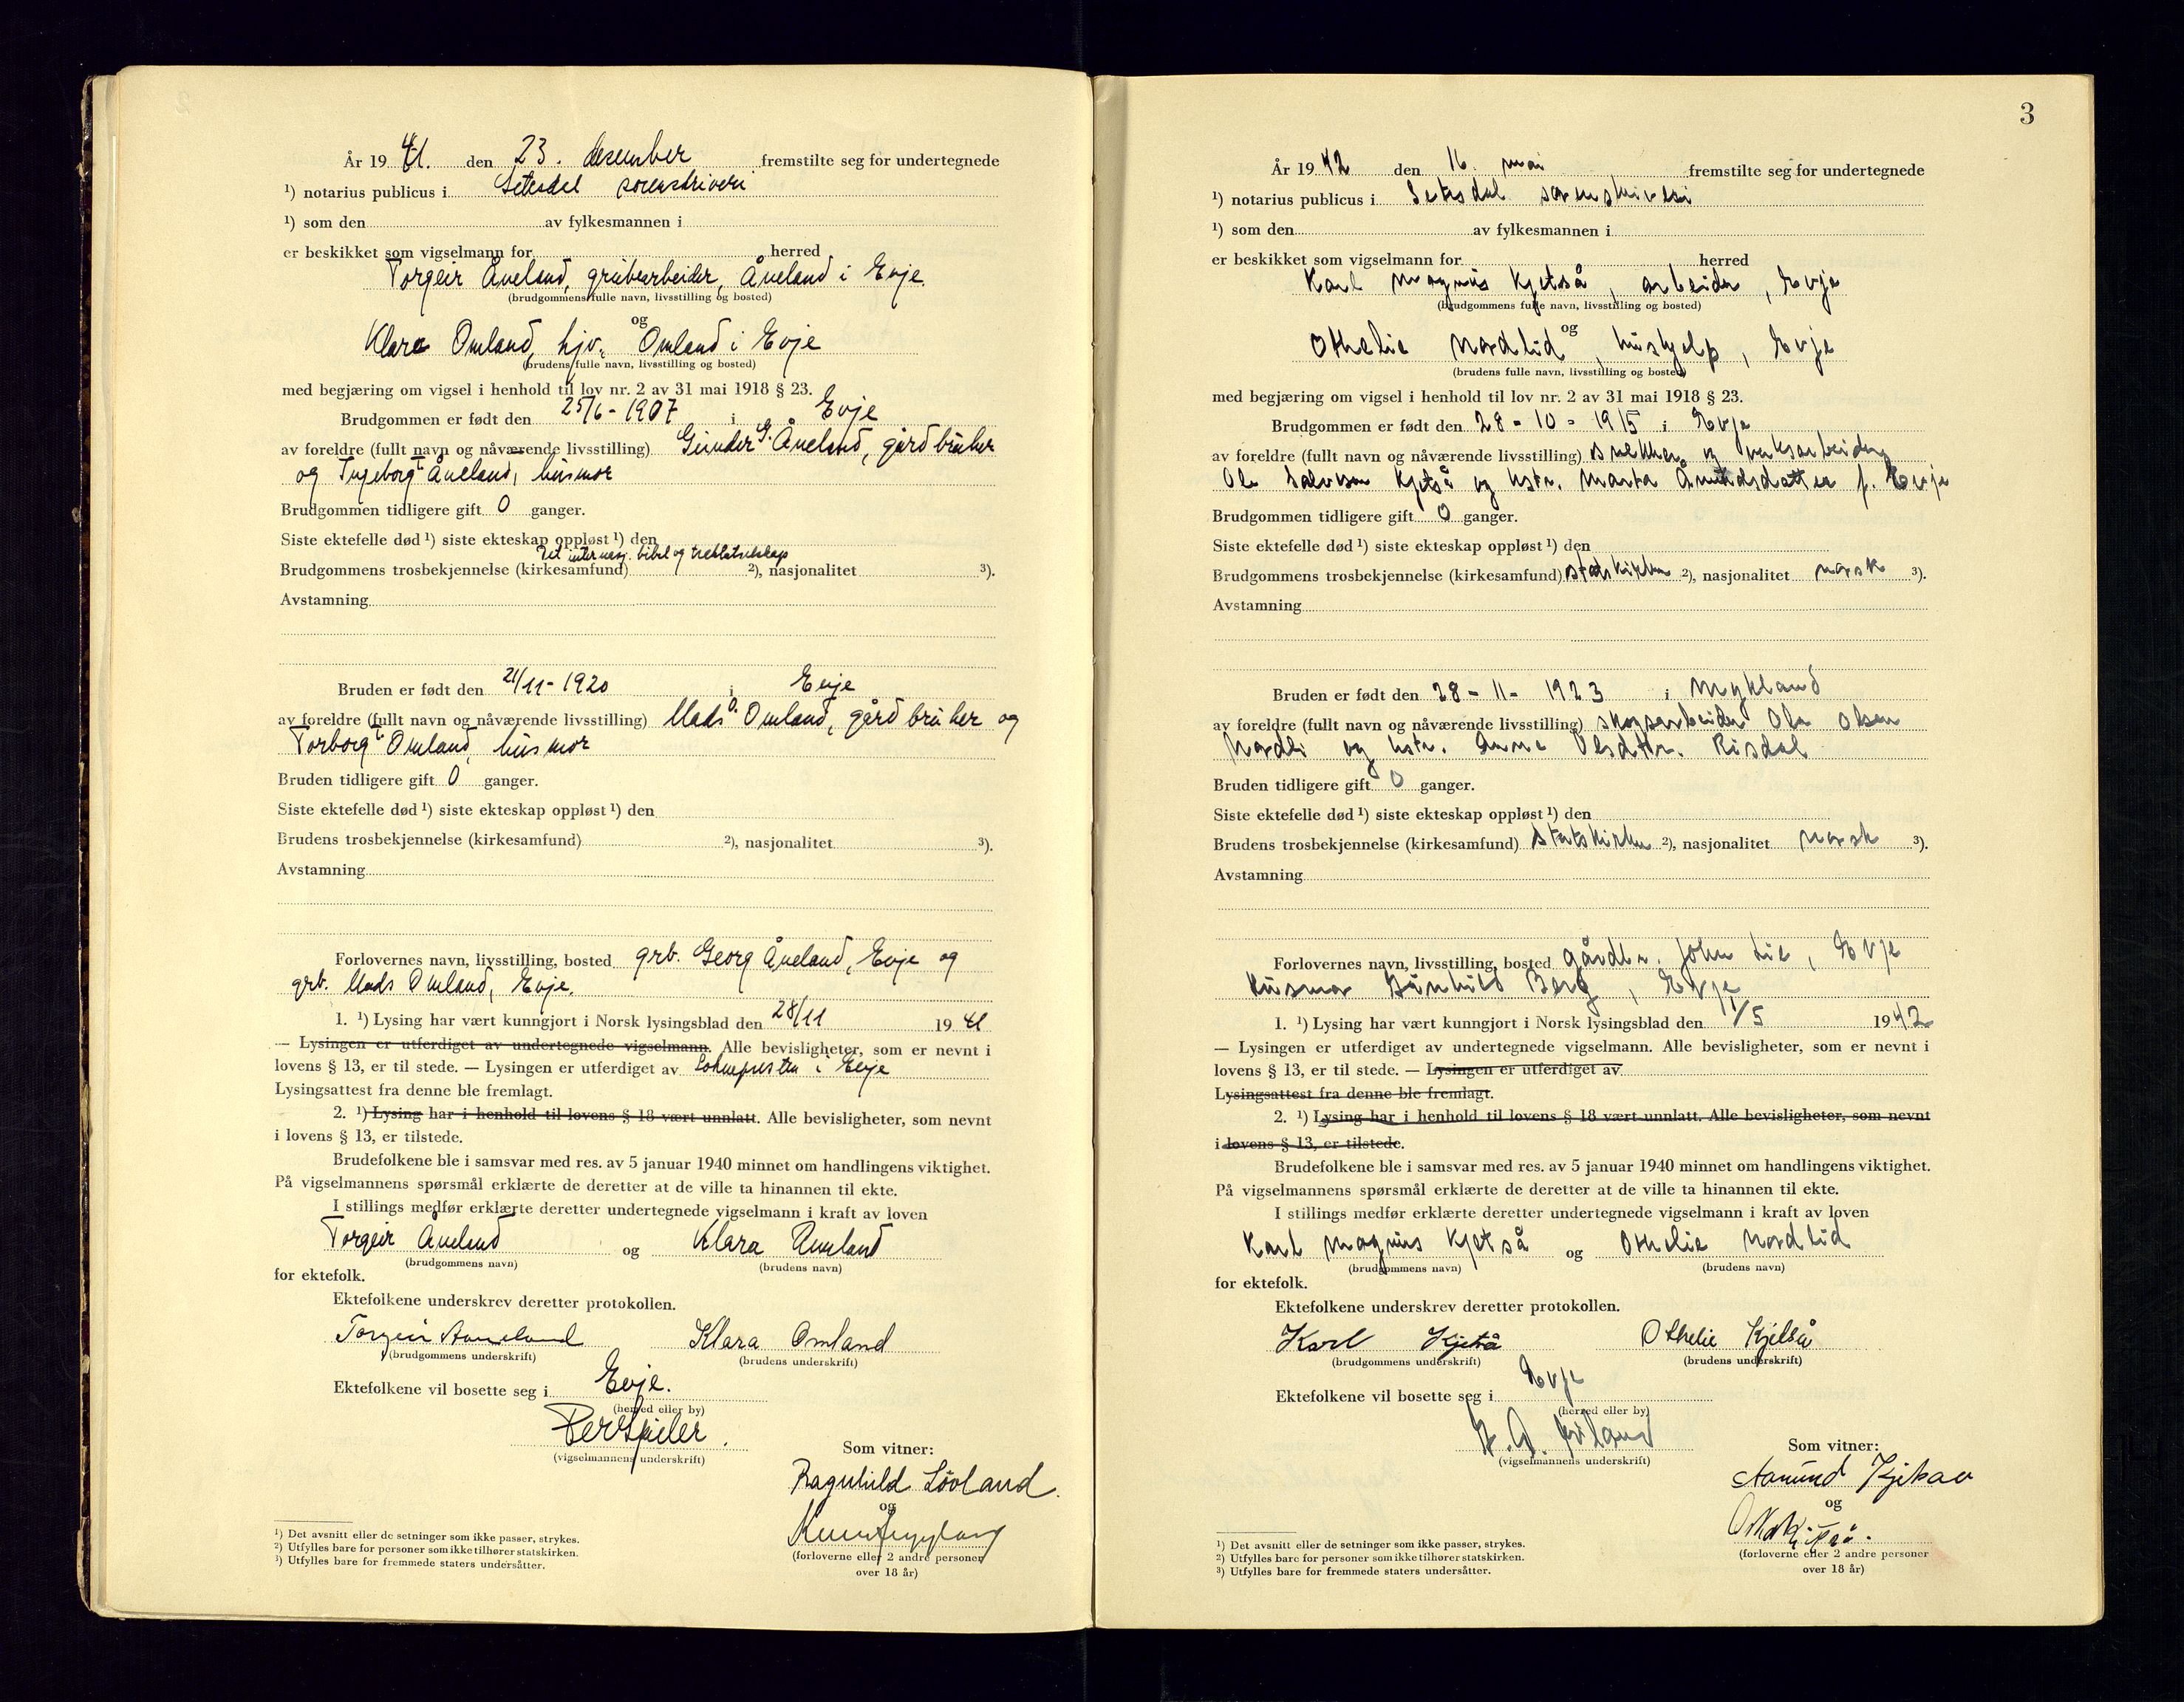 År 1941. den 23. desember fremstilte seg for undertegnede
¹) notarius publicus i Setesdal sorenskriveri
¹) som den av fylkesmannen i
er beskikket som vigselmann for herred
Torgeir Åneland, grubearbeider, Åneland i Evje.
(brudgommens fulle navn, livsstilling og bosted)
og
Klara Omland, hjv., Omland i Evje
(brudens fulle navn, livsstilling og bosted)
med begjæring om vigsel i henhold til lov nr. 2 av 31 mai 1918 § 23.
Brudgommen er født den 25/6 - 1907 i Evje
av foreldre (fullt navn og nåværende livsstilling) Gunder G. Åneland, gårdbruker
og Ingeborg T. Åneland, husmor
Brudgommen tidligere gift 0 ganger.
Siste ektefelle død ¹) siste ekteskap oppløst ¹) den
Det internasj. bibel og traktatselskap
Brudgommens trosbekjennelse (kirkesamfund) ²), nasjonalitet ³).
Avstamning
Bruden er født den 21/11 - 1920 i Evje
av foreldre (fullt navn og nåværende livsstilling) Mads O. Omland, gårdbruker og
Torborg T. Omland, husmor
Bruden tidligere gift 0 ganger.
Siste ektefelle død ¹) siste ekteskap oppløst ¹) den
Brudens trosbekjennelse (kirkesamfund) ²), nasjonalitet ³).
Avstamning
Forlovernes navn, livsstilling, bosted grb. Georg Åneland, Evje og
grb. Mads Omland, Evje.
1. ¹) Lysing har vært kunngjort i Norsk lysingsblad den 28/11 1941
— Lysingen er utferdiget av undertegnede vigselmann. Alle bevisligheter, som er nevnt i
lovens § 13, er til stede. — Lysingen er utferdiget av Soknepresten i Evje
Lysingsattest fra denne ble fremlagt.
2. ¹) Lysing har i henhold til lovens § 18 vært unnlatt. Alle bevisligheter, som nevnt
i lovens § 13, er tilstede.
Brudefolkene ble i samsvar med res. av 5 januar 1940 minnet om handlingens viktighet.
På vigselmannens spørsmål erklærte de deretter at de ville ta hinannen til ekte.
I stillings medfør erklærte deretter undertegnede vigselmann i kraft av loven
Torgeir Åneland og Klara Omland
(brudgommens navn) (brudens navn)
for ektefolk.
Ektefolkene underskrev deretter protokollen.
Torgeir Aaneland Klara Omland
(brudgommens underskrift) (brudens underskrift)
Ektefolkene vil bosette seg i Evje.
(herred eller by)
(vigselmannens underskrift)
Som vitner:
Ragnhild Lövland.
og
(forloverne eller 2 andre personer
over 18 år)
¹) Det avsnitt eller de setninger som ikke passer, strykes.
²) Utfylles bare for personer som ikke tilhører statskirken.
³) Utfylles bare for fremmede staters undersåtter.
3
År 1942 den 16. mai fremstilte seg for undertegnede
¹) notarius publicus i Setesdal sorenskriveri
¹) som den av fylkesmannen i
er beskikket som vigselmann for herred
Karl Magnus Kjetså, arbeider, Evje
(brudgommens fulle navn, livsstilling og bosted)
og
Othelie Nordlid, hushjelp, Evje
(brudens fulle navn, livsstilling og bosted)
med begjæring om vigsel i henhold til lov nr. 2 av 31 mai 1918 § 23.
Brudgommen er født den 28 - 10 - 1915 i Evje
av foreldre (fullt navn og nåværende livsstilling) snekker og verksarbeider
Ola Salvesen Kjetså og hstr. Marta f. Evje
Brudgommen tidligere gift 0 ganger.
Siste ektefelle død ¹) siste ekteskap oppløst ¹) den
Brudgommens trosbekjennelse (kirkesamfund) statskirken ²), nasjonalitet norsk ³).
Avstamning
Bruden er født den 28 - 11 - 1923 i Mykland
av foreldre (fullt navn og nåværende livsstilling) skogsarbeider Ola Olsen
Nordli og hstr. Anna Olsdtr. Risdal
Bruden tidligere gift 0 ganger.
Siste ektefelle død ¹) siste ekteskap oppløst ¹) den
Brudens trosbekjennelse (kirkesamfund) Statskirken ²), nasjonalitet norsk ³).
Avstamning
Forlovernes navn, livsstilling, bosted gårdbr. John Lie, Evje
husmor Gunhild Berg, Evje
1. ¹) Lysing har vært kunngjort i Norsk lysingsblad den 11/5 1942
— Lysingen er utferdiget av undertegnede vigselmann. Alle bevisligheter, som er nevnt i
lovens § 13, er til stede. — Lysingen er utferdiget av
Lysingsattest fra denne ble fremlagt.
2. ¹) Lysing har i henhold til lovens § 18 vært unnlatt. Alle bevisligheter, som nevnt
i lovens § 13, er tilstede.
Brudefolkene ble i samsvar med res. av 5 januar 1940 minnet om handlingens viktighet.
På vigselmannens spørsmål erklærte de deretter at de ville ta hinannen til ekte.
I stillings medfør erklærte deretter undertegnede vigselmann i kraft av loven
Karl Magnus Kjetså og Othelie Nordlid
(brudgommens navn) (brudens navn)
for ektefolk.
Ektefolkene underskrev deretter protokollen.
Karl Kjetså Othelie Kjetså
(brudgommens underskrift) (brudens underskrift)
Ektefolkene vil bosette seg i Evje
(herred eller by)
(vigselmannens underskrift)
Som vitner:
Aamund
og
(forloverne eller 2 andre personer
over 18 år)
¹) Det avsnitt eller de setninger som ikke passer, strykes.
²) Utfylles bare for personer som ikke tilhører statskirken.
³) Utfylles bare for fremmede staters undersåtter.